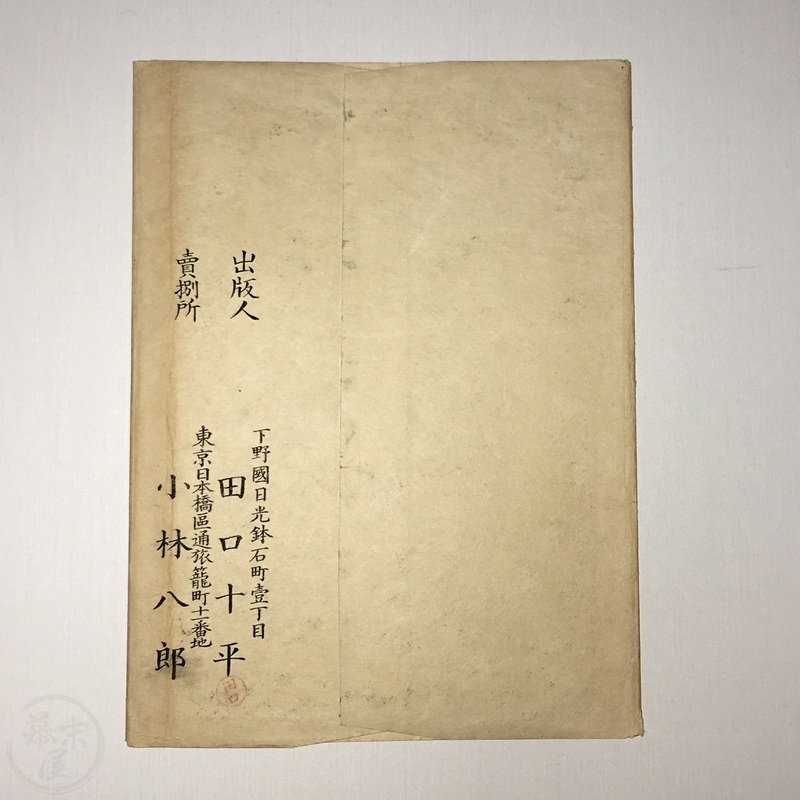 出版人
下野國日光鉢石町壹丁目
田口十平
田口
賣捌所
東京日本橋區通旅籠町十一番地
小林八郎
幕末屋